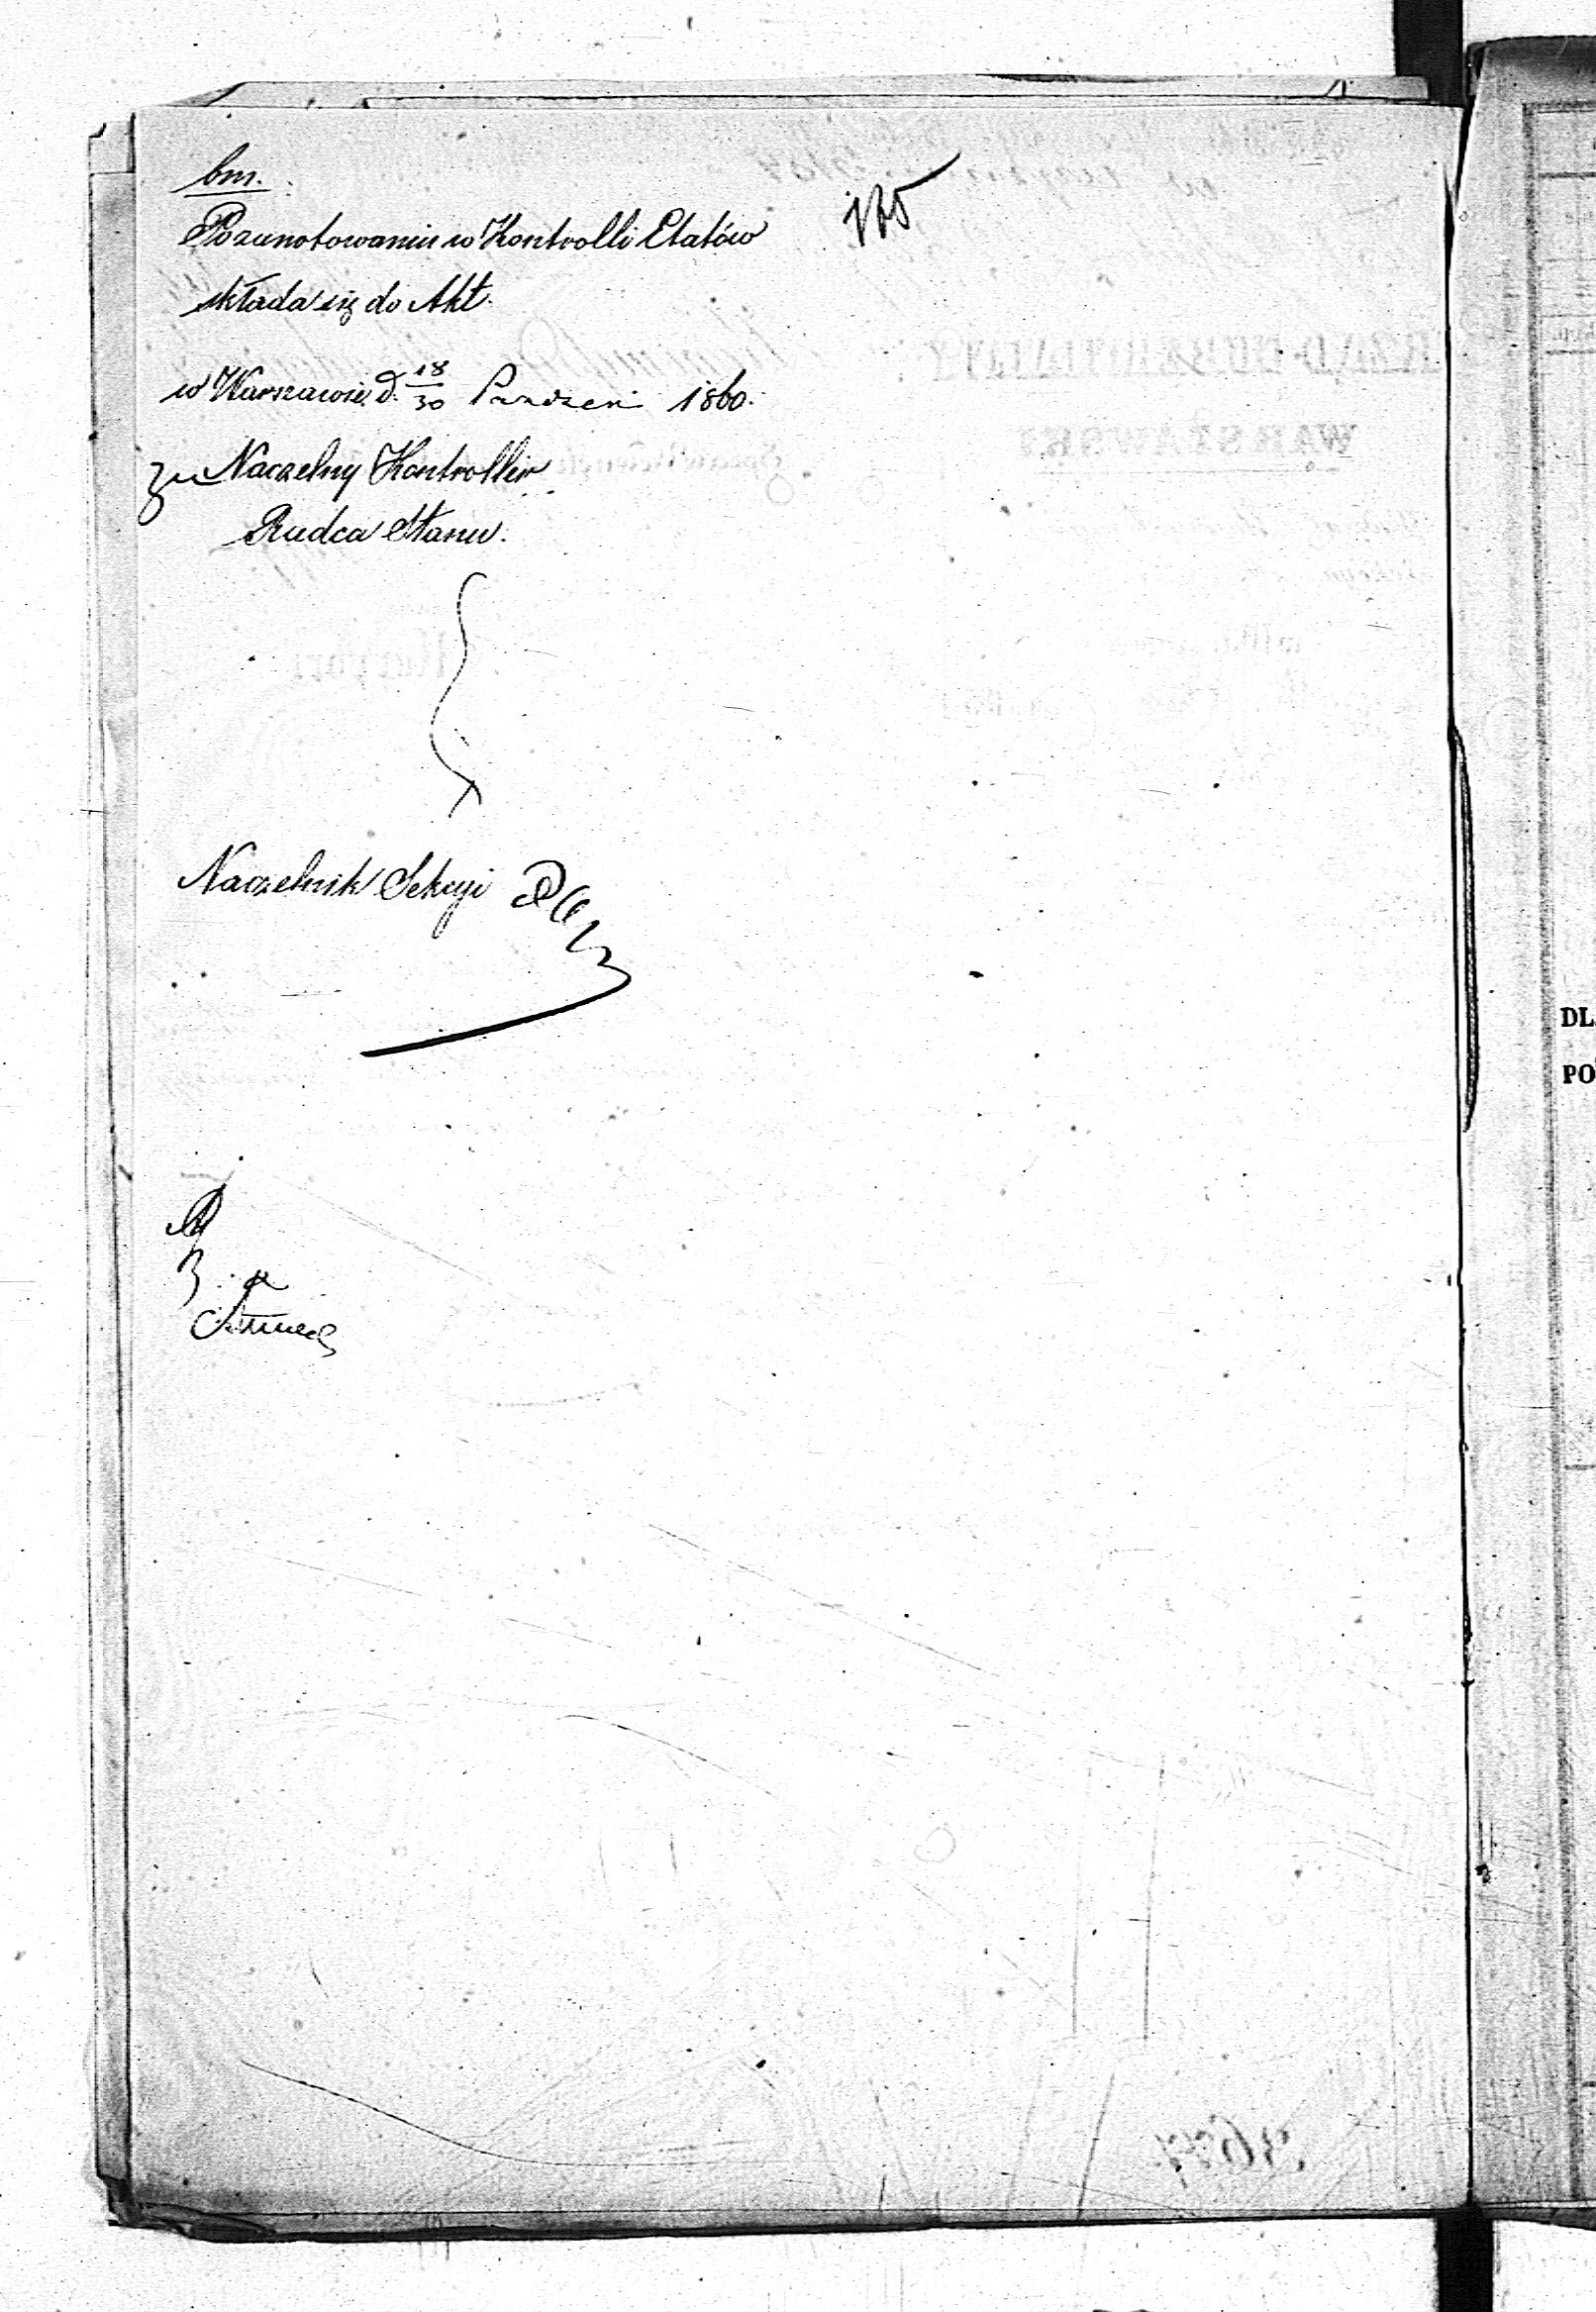 bm.
185
Po zanotowaniu w Kontrolli Etatów
składa się do Akt.
w Warszawie d. 18/30 Paździer 1860.
za Naczelny Kontroller
Radca Stanu.
Naczelnik Sekcyi
DL
PO